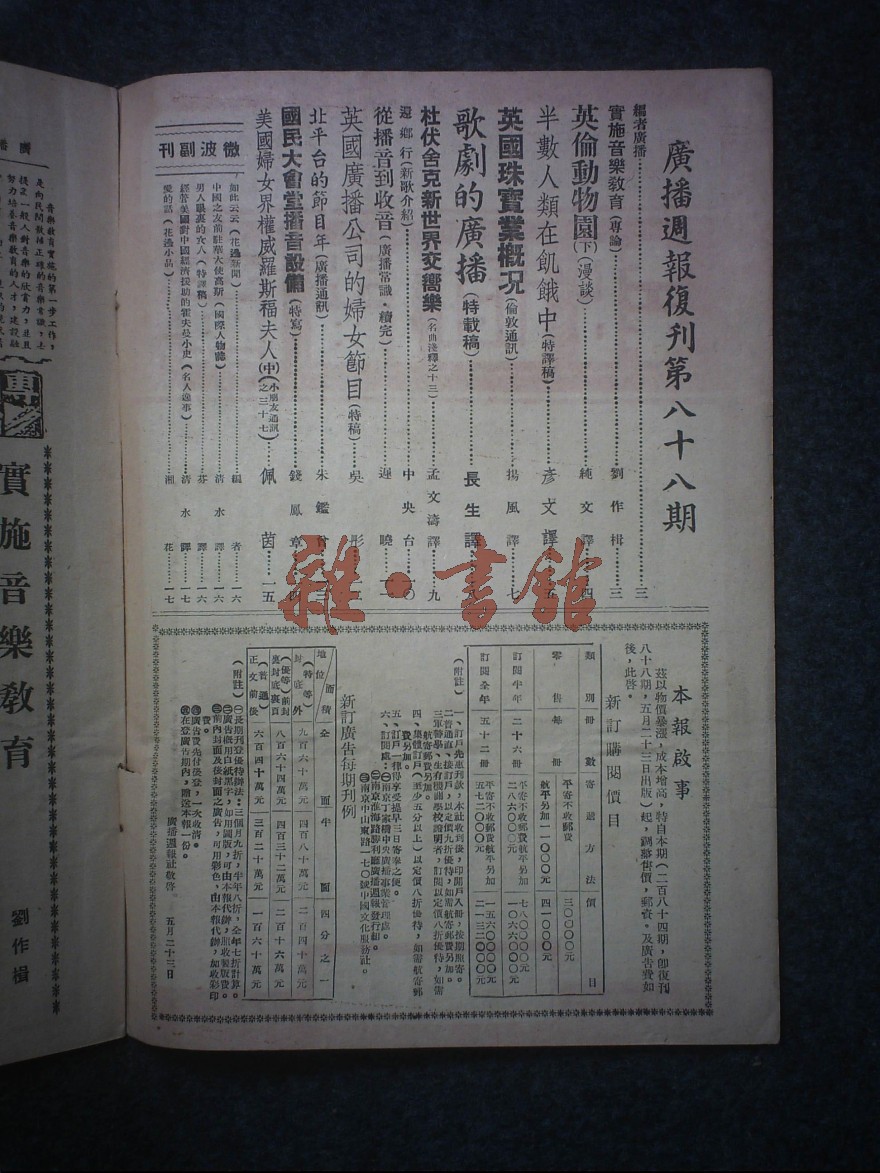 廣播週報復刊第八十八期
編者廣播……三
實施音樂教育(專論)……劉作楫……三
英倫動物園(下)(漫談)……純文譯……四
半數人類在飢餓中(特譯稿)……彥文譯……五
英國珠寶業概况(倫敦通訊)……揚風譯……七
歌劇的廣播(特載稿)……長生譯……
杜伏舍克新世界交響樂(名曲淺釋之十三)……孟文濤譯……九
還鄉行(新歌介紹)……中央台……一〇
從播音到收音(廣播常識·續完)……遲曉……一
英國廣播公司的婦女節目(特稿)……吳彤……
北平台的節目年(廣播通訊)……朱鑑
國民大會堂播音設備(特寫)……錢鳳章……四
美國婦女界權威羅斯福夫人(中)(小朋友通訊之三十七)……佩茵……一五
微波副刊
如此云云(花邊新聞)……編者……一六
中國之友前駐華大使高斯(國際人物誌)……清水譯……一六
男人眼裏的女人(特譯稿)……芬譯……一六
經營美國對中國經濟援助的霍夫曼小史(名人逸事)……清水譯……一七
愛的話(花邊小品)……湘花……一七
本報啟事
茲以物價暴漲,成本增高,特自本期(二百八十四期,即復刊
八十八期,五月二十三日出版)起,調整售價,郵資。及廣告費如
後,此啓。
新訂購閱價目
類別 冊數 寄遞方法 價目
零售每一冊 平寄不收郵費 三〇〇〇〇元
航平另加一一〇〇〇元 四一〇〇〇元
訂閱半年 二十六冊 平寄不收郵費航平另加二八六〇〇〇元 七八〇〇〇〇元 一〇六六〇〇〇元
訂閱全年 五十二冊 平寄不收郵費航平另加五七二〇〇〇元 一五六〇〇〇〇元 二一三二〇〇〇元
(附註)一、訂戶先惠刊款,本社收到後,即開戶入冊,按期照寄。
二、普通直接訂戶,以定價九折優待,如需航寄郵費另加。
三、軍警學生有機關學校證明者,訂閱以定價八折優待,如需
航寄郵費另加。
四、集體訂戶(至少五分以上)以定價八折優待,如需航寄郵
費另加。
五、訂戶一律得享受提早三日寄奉之便。
六、訂閱處:㊀南京丁家橋中央廣播事業管理處。
㊁南京淮海路勝利廳廣播週報發行組。
㊂南京中山東路一七〇號中國文化服務社。
新訂廣告每期刊例
地位 面積 全面 半面 四分之一
(特等)封底外 九百六十萬元 四百八十萬元 二百四十萬元
(優等)前封裏封底裏頁 八百六十四萬元 四百三十二萬元 二百十六萬元
(普通)正文前後 六百四十萬元 三百二十萬元 一百六十萬元
(附註)㊀長期刊登優待辦法:三個月九折,半年八折,全年七折計算。
㊁廣告概用白紙黑字,如用圖版,可由本報代辦,照收製版費。
㊂前內封面及後封面之廣告,可用彩色,由本報代辦,加收彩印
費。
㊃廣告費先付後登,一次收清。
㊄在登廣告期內,贈送本報一份。
廣播週報社敬啓 五月二十三日
雜·書館
廣播
音樂教育實施的第一步工作,
是向民間散播正確的音樂常識,
提足一般人對音樂的欣賞力,並且
努力培養音樂教育的人才,建設
專
實施音樂教育
劉作楫